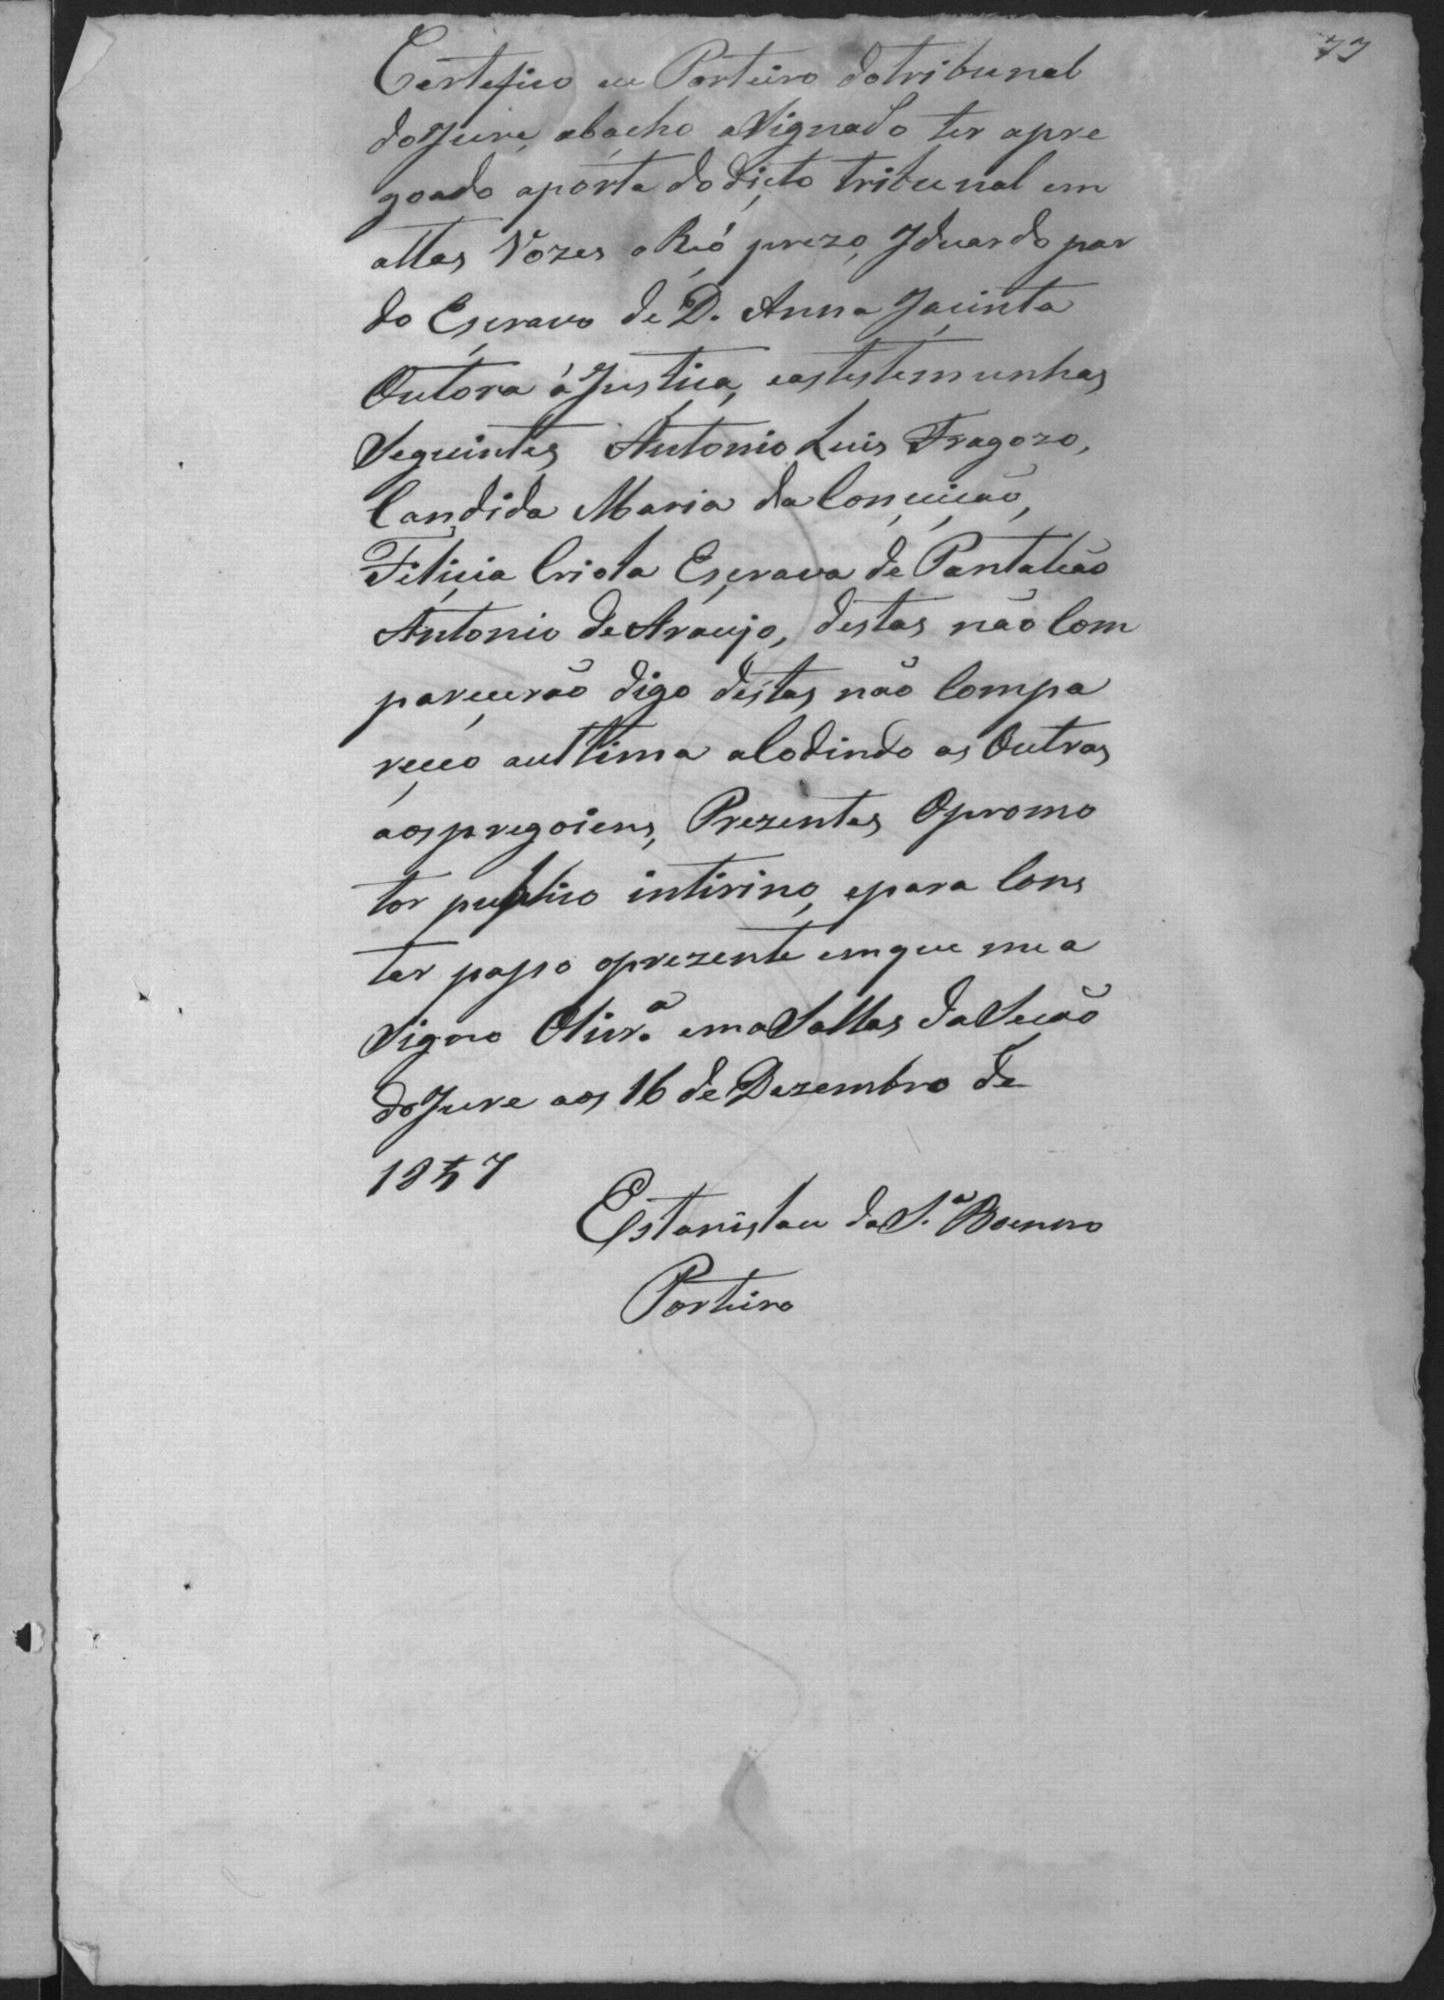 77
Certefico eu Porteiro do tribunal
do Jure, abacho aSignado ter apre
goado aporta do dicto tribunal em
altas Vozes o Reó prezo, Iduardo par
do Escravo de D. Anna Jacinta
Outora á Justiça, eastestemunhas
Seguintes Antonio Luis Fragozo,
Candida Maria da Conçeicão,
Felicia Criola Escrava de Pantaleão
Antonio de Araujo, destas não Com
parecerão digo destas não Compa
receo aultima alodindo as Outras
aos pregoiens, Prezentes Opromo
tor publico intirino, epara Cons
tar passo oprezente emque me a
Signo Olivr.ª emaSallas daSeção
do Jure aos 16 de Dezembro de
1857
Estanislau da S.ª Boeno
Porteiro